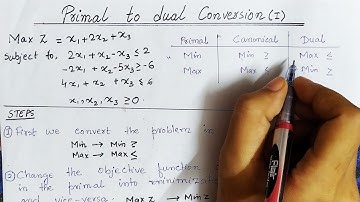 Primal to dual Conversion (I)
Max Z = x₁+2x₂+x₃
subject to 2x₁+x₂-x₃ ≤ 2
-2x₁+x₂-5x₃ ≥ -6
4x₁+x₂+x₃ ≤ 6
x₁,x₂,x₃ ≥ 0.
Primal Canonical Dual
Min Min ≥ Max ≤
Max Max Min ≥
STEPS
① First we convert the problem in
Min → Min ≥
Max → Max ≤
② Change the objective function
in the primal into
and vice-versa. Max Z → Min Z